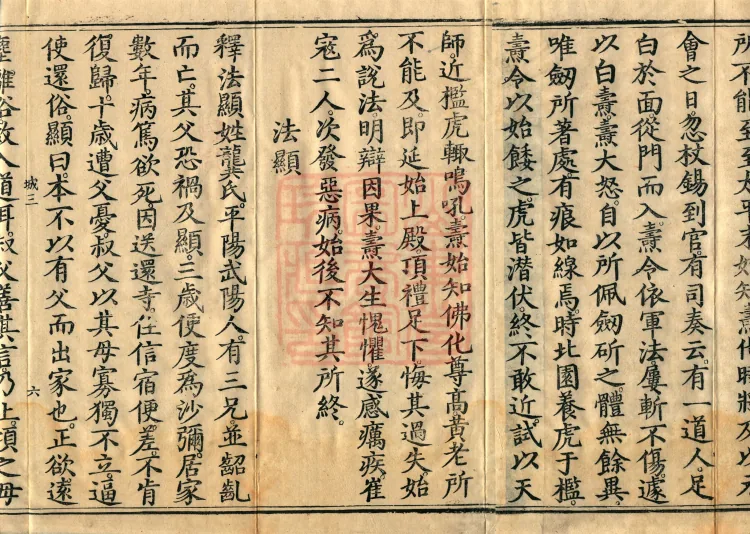 會之日。忽杖錫到官。有司奏云。有一道人。足
白於面。從門而入。燾令依軍法屢斬不傷。遽
以白燾。燾大怒。自以所佩劒斫之。體無餘異。
唯劒所著處。有痕如線焉。時北園養虎于檻。
燾令以始餧之。虎皆潛伏。終不敢近。試以天
師。近檻虎輙鳴吼。燾始知佛化尊高黃老所
不能及。即延始上殿。頂禮足下。悔其過失。始
爲說法。明辯因果。燾大生愧懼。遂感癘疾。崔
寇二人。次發惡病。始後不知其所終。
法顯
釋法顯。姓龔氏。平陽武陽人。有三兄。並齠齓
而亡。其父恐禍及顯。三歲便度爲沙彌。居家
數年。病篤欲死。因送還寺。住信宿便差。不肯
復歸。十歲遭父憂。叔父以其母寡獨不立。逼
使還俗。顯曰。本不以有父而出家也。正欲遠
城三 六